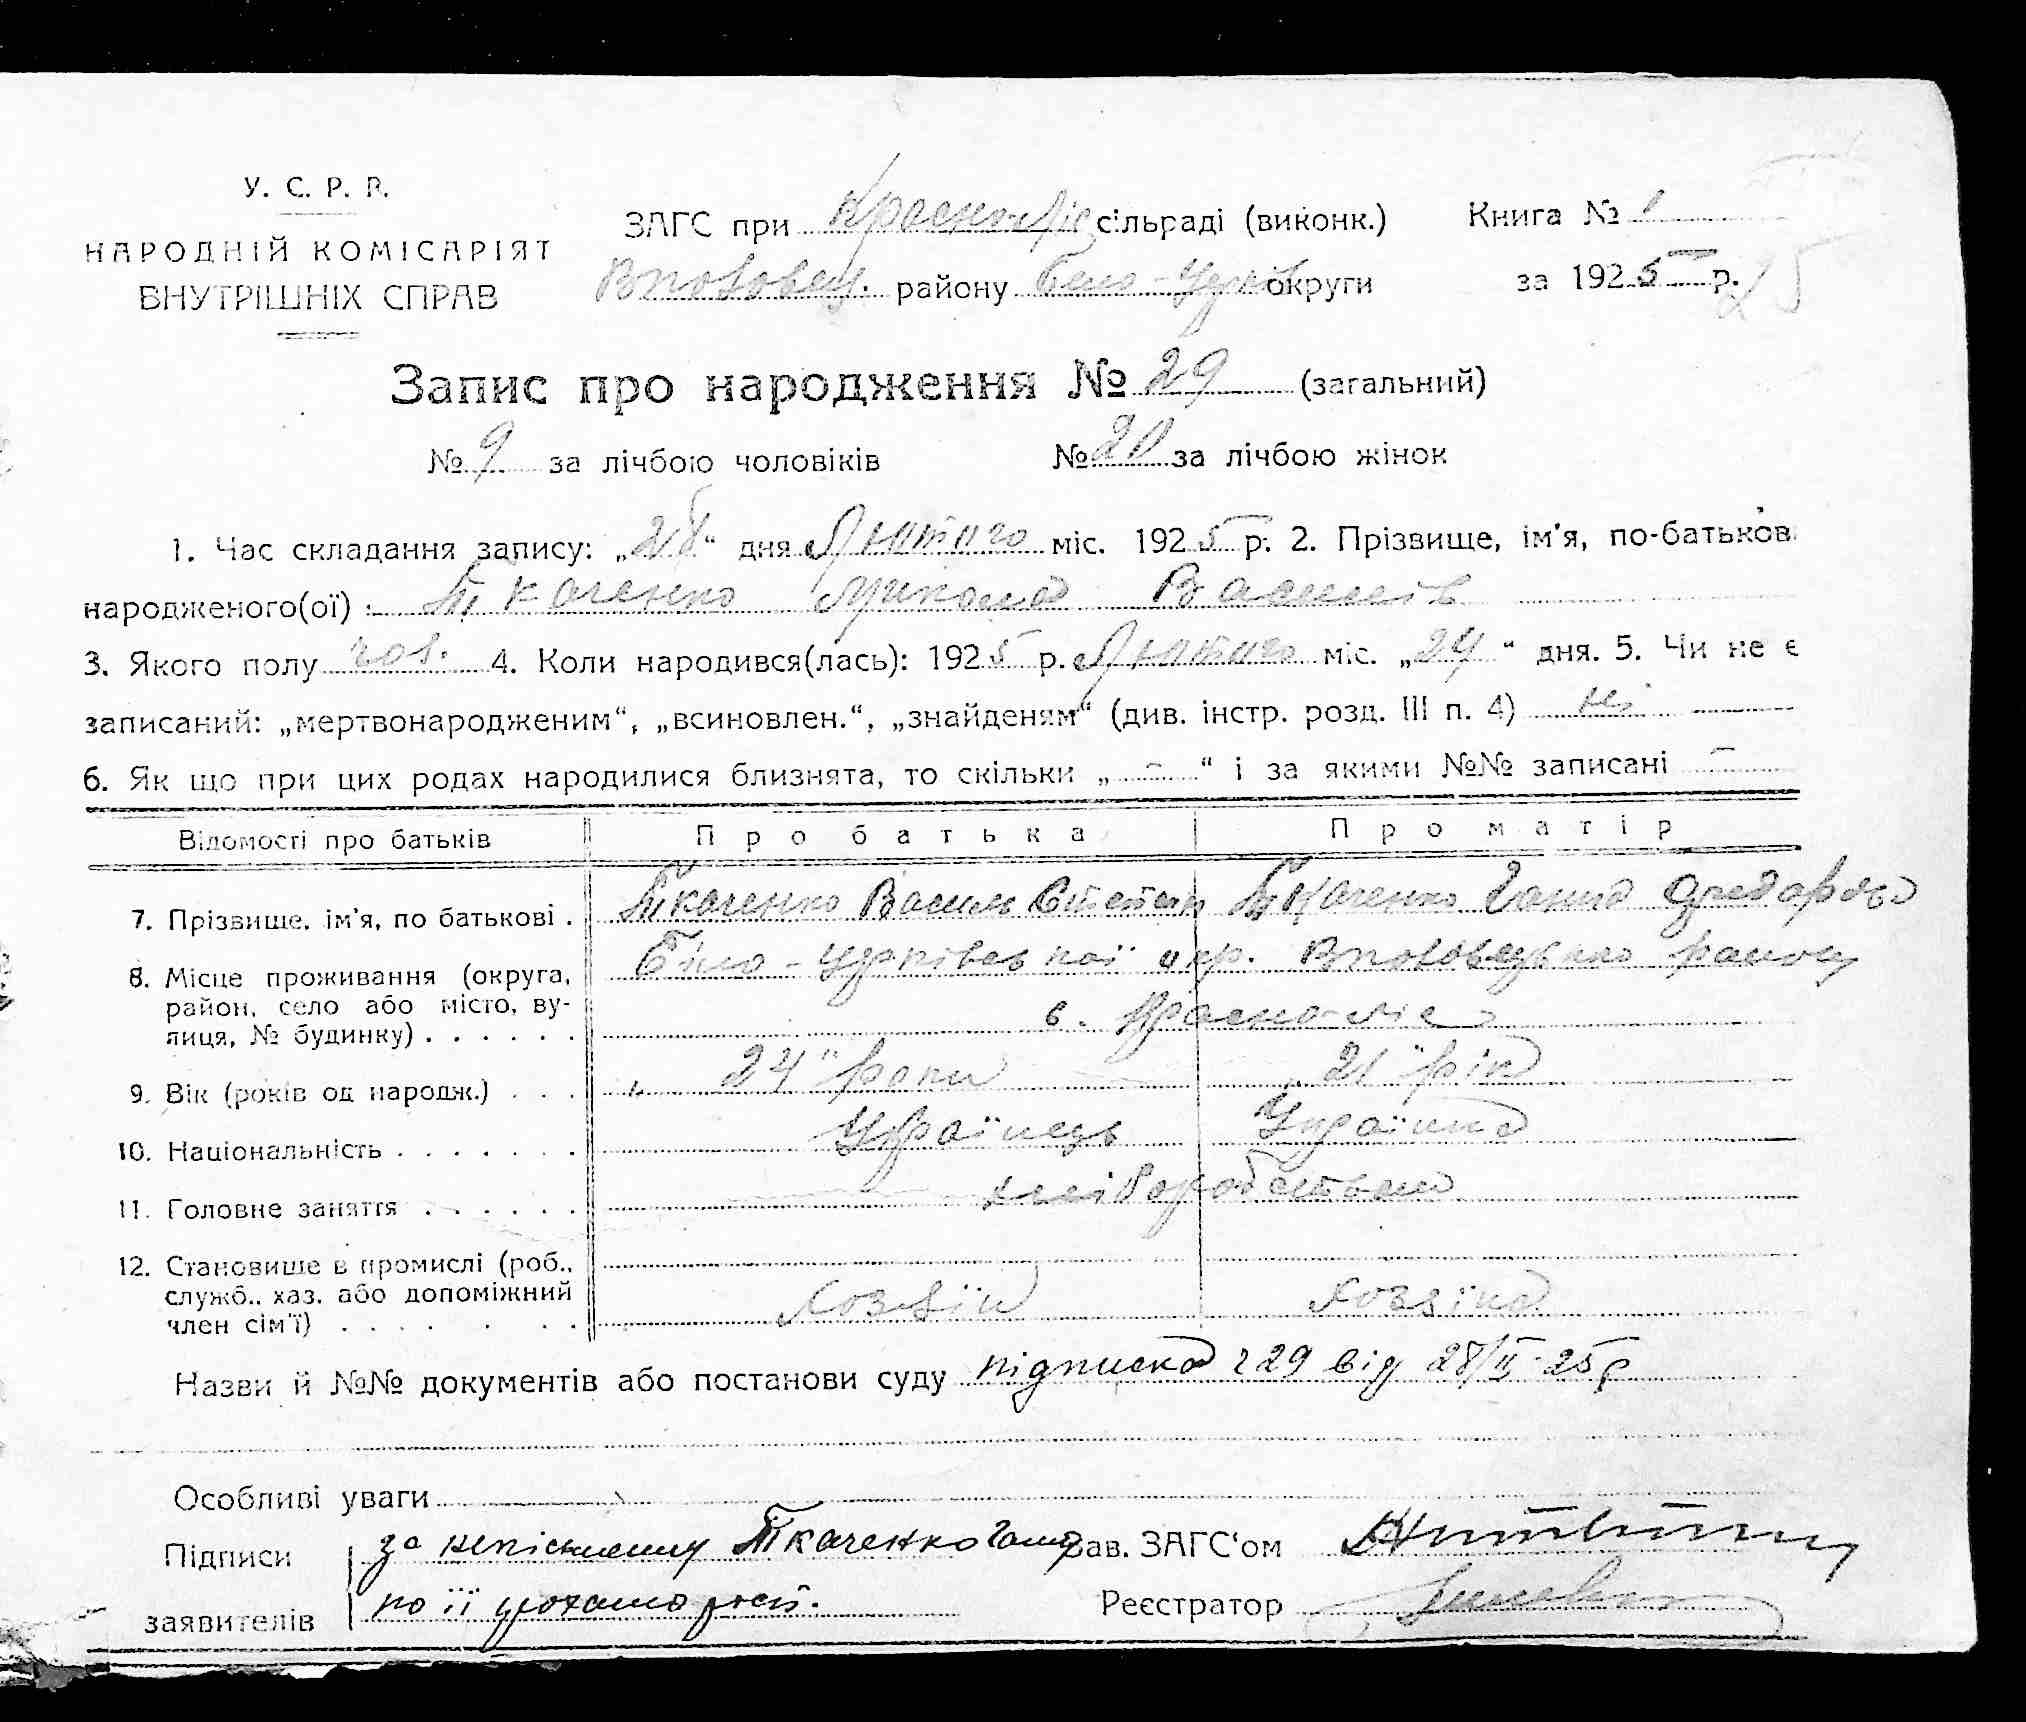 У. С. Р. Р.
НАРОДНІЙ КОМІСАРІЯТ
ВНУТРІШНІХ СПРАВ
ЗАГС при Красно-Ліс сільраді (виконк.) Книга № 1
району Біло-Церк округи за 1925 р. 25
Запис про народження № 29 (загальний)
№ 9 за лічбою чоловіків № 20 за лічбою жінок
1. Час складання запису: „28“ дня Лютого міс. 1925 р. 2. Прізвище, ім'я, по-батькові
народженого(ої): Ткаченко Микола Василів
3. Якого полу чол. 4. Коли народився(лась): 1925 р. Лютого міс. „24“ дня. 5. Чи не є
записаний: „мертвонародженим“, „всиновлен.“, „знайденям“ (див. інстр. розд. III п. 4) ні
6. Як що при цих родах народилися близнята, то скільки „ - “ і за якими №№ записані -
Відомості про батьків Про батька Про матір
7. Прізвище, ім'я, по батькові . Ткаченко Василь Степан Ткаченко Ганна Федорова
8. Місце проживання (округа, Біло-Церківської окр. району
район, село або місто, ву- с. Красно-ліс
лиця, № будинку) . . . . . .
9. Вік (років од народж.) . . . „24“ роки „21“ рік
10. Національність . . . . . . . Українець Українка
11. Головне заняття . . . . . . хліборобством
12. Становище в промислі (роб.,
служб., хаз. або допоміжний хозяїн хозяїка
член сім'ї) . . . . . . .
Назви й №№ документів або постанови суду підписка 29 від 28/II-25 р
Особливі уваги
Підписи за неписьменну Ткаченко Ганну Зав. ЗАГС'ом
заявителів по її Реєстратор